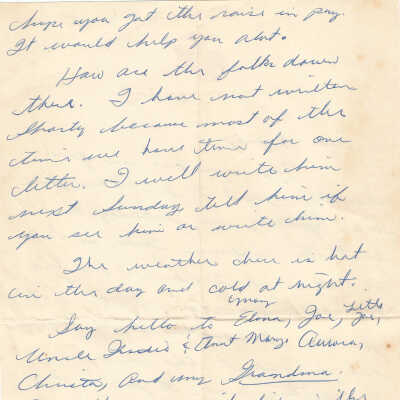 hope you got the raise in pay.
It would help you alot.
How are the folks down
there. I have not written
Shorty because most of the
time we have time for one
letter. I will write him
next Sunday, tell him if
you see him or write him.
The weather here is hot
in the day and cold at night.
Say hello to my Elena, Joe, Little Joe,
Uncle & Aunt Mary, Aurora,
Christa, and my Grandma.